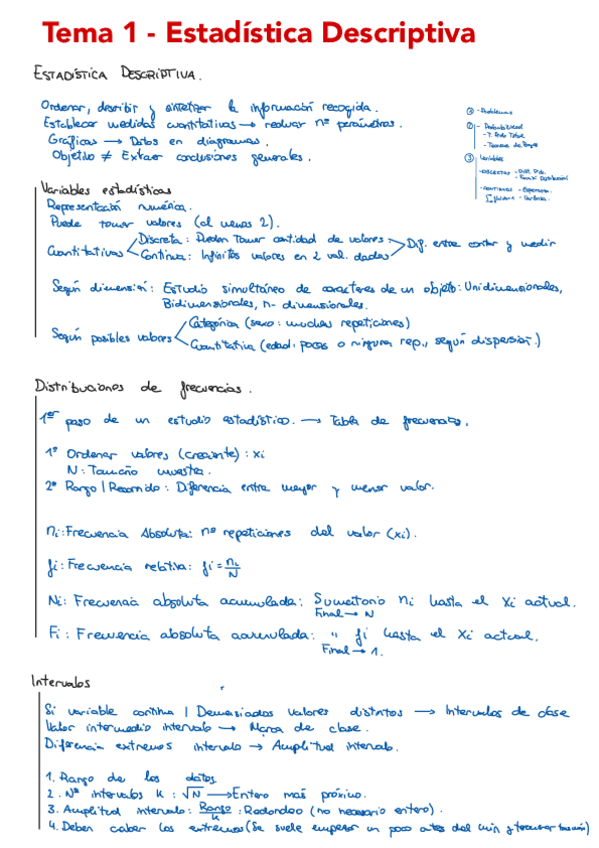 Tema 1 - Estadística Descriptiva
ESTADÍSTICA DESCRIPTIVA.
Ordenar, describir y sintetizar la información recogida.
Establecer medidas cuantitativas → reducir nº parámetros.
Gráficas → Datos en diagramas.
Objetivo ≠ Extraer conclusiones generales.
① - Problemas
② - Probabilidad
- T. Prob Total
- Teorema de Bayes
③ Variables
- DISCRETAS - Dist. Prob.
- Función Distribución
- CONTINUAS - Esperanza
- Varianza
Variables estadísticas
Representación numérica.
Puede tomar valores (al menos 2).
Cuantitativas
Discreta: Pueden tomar cantidad de valores
Continua: Infinitos valores en 2 val. dados
Dif. entre contar y medir
Según dimensión: Estudio simultáneo de caracteres de un objeto: Unidimensionales,
Bidimensionales, n-dimensionales.
Según posibles valores
Categórica (sexo: muchas repeticiones)
Cuantitativa (edad: pocas o ninguna rep., según dispersión.)
Distribuciones de frecuencias.
1er paso de un estudio estadístico. → Tabla de frecuencias.
1º Ordenar valores (creciente): xi
N: Tamaño muestra.
2º Rango | Recorrido: Diferencia entre mayor y menor valor.
ni: Frecuencia Absoluta: nº repeticiones del valor (xi).
fi: Frecuencia relativa: fi = ni/N
Ni: Frecuencia absoluta acumulada: Sumatorio ni hasta el Xi actual.
Final → N
Fi: Frecuencia absoluta acumulada: " fi hasta el Xi actual.
Final → 1.
Intervalos
Si variable continua | Demasiados valores distintos → Intervalos de clase
Valor intermedio intervalo → Marca de clase.
Diferencia extremos intervalo → Amplitud intervalo.
1. Rango de los datos.
2. Nº intervalos k: √N → Entero más próximo.
3. Amplitud intervalo: Rango/k: Redondeo (no necesario entero).
4. Deben caber los extremos (Se suele empezar un poco antes del min y